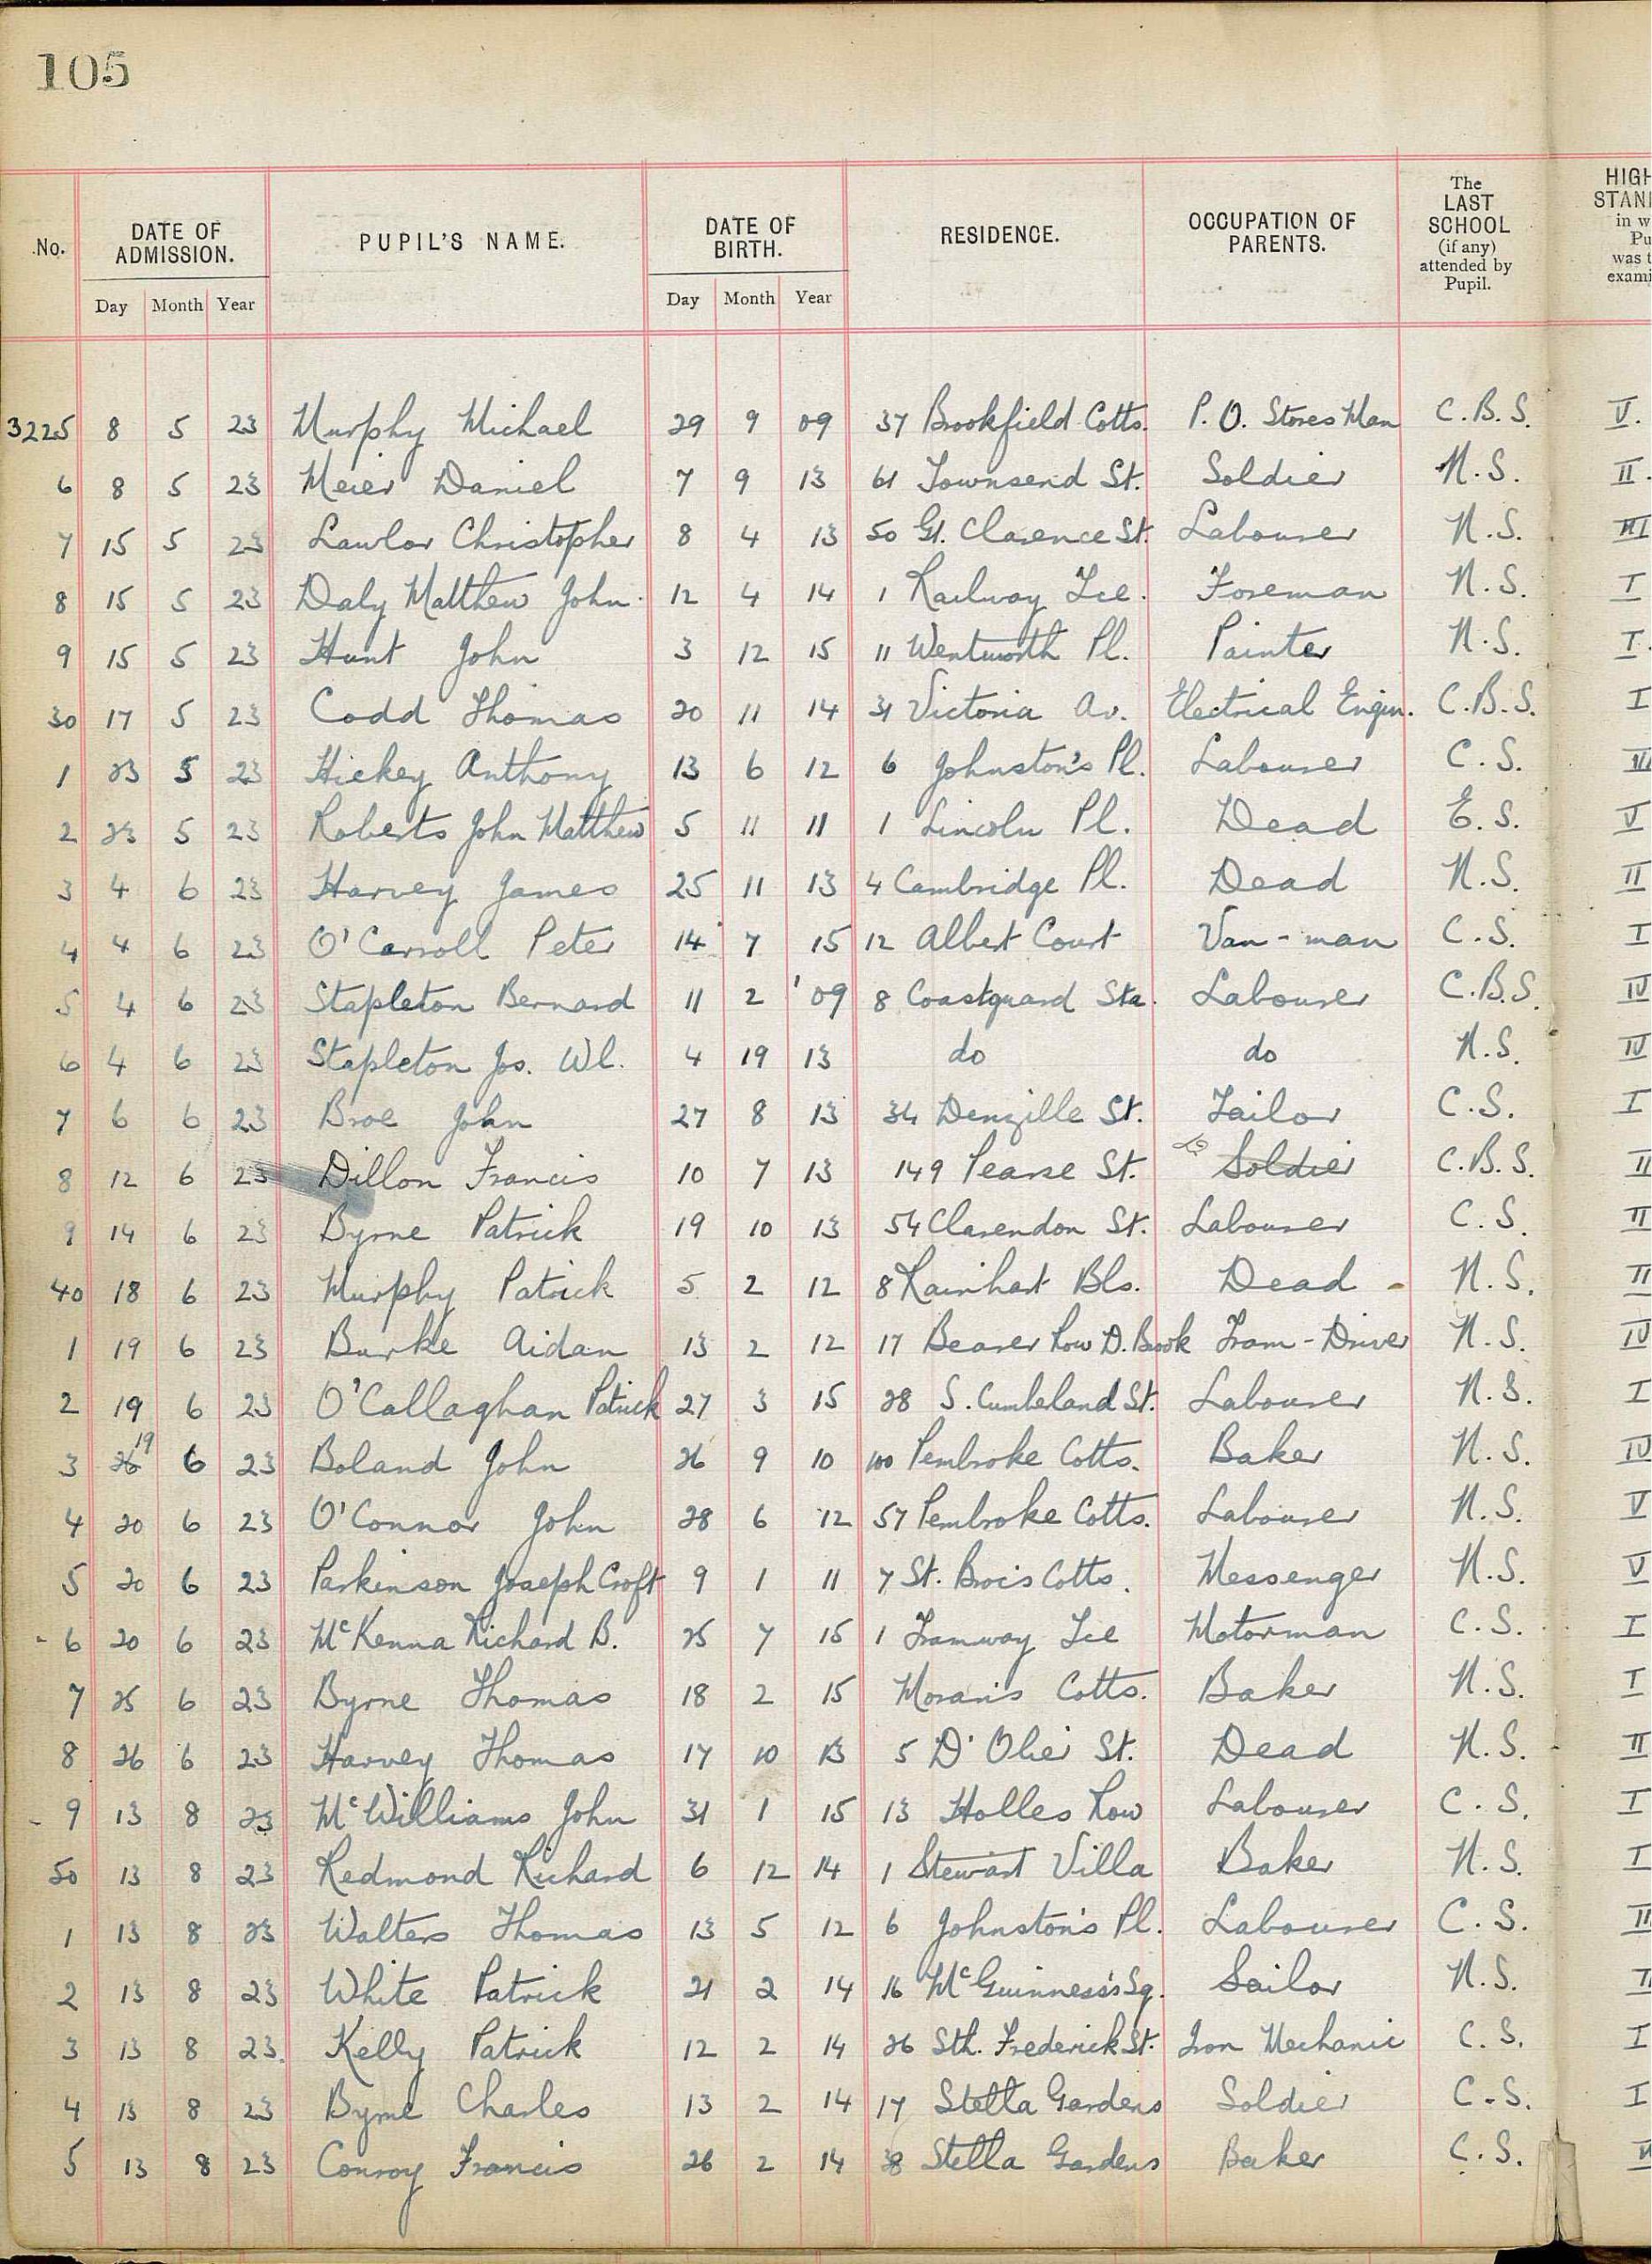 105
No. DATE OF ADMISSION. PUPIL'S NAME. DATE OF BIRTH. RESIDENCE. OCCUPATION OF PARENTS. The LAST SCHOOL (if any) attended by Pupil. HIGH STAN in w Pu was t exami
Day Month Year Day Month Year
3225 8 5 23 Murphy Michael 29 9 09 37 Brookfield Cotts. P. O. Stores Man C. B. S. V.
6 8 5 23 Meier Daniel 7 9 13 61 Townsend St. Soldier N. S. II.
7 15 5 23 Lawlor Christopher 8 4 13 50 Gt. Clarence St. Labourer N. S. III
8 15 5 23 Daly Matthew John 12 4 14 1 Railway Tce. Foreman N. S. I
9 15 5 23 Hunt John 3 12 15 11 Wentworth Pl. Painter N. S. I.
30 17 5 23 Codd Thomas 20 11 14 31 Victoria Av. Electrical Engin. C. B. S. I
1 23 5 23 Hickey Anthony 13 6 12 6 Johnston's Pl. Labourer C. S. III
2 23 5 23 Roberts John Matthew 5 11 11 1 Lincoln Pl. Dead E. S. V
3 4 6 23 Harvey James 25 11 13 4 Cambridge Pl. Dead N. S. II
4 4 6 23 O'Carroll Peter 14 7 15 12 Albert Court Van-man C. S. I
5 4 6 23 Stapleton Bernard 11 2 '09 8 Coastguard Sta. Labourer C. B. S. IV
6 4 6 23 Stapleton Jos. Wl. 4 19 13 do do N. S. IV
7 6 6 23 Broe John 27 8 13 34 Denzille St. Tailor C. S. I
8 12 6 23 Dillon Francis 10 7 13 149 Pearse St. Soldier C. B. S. II
9 14 6 23 Byrne Patrick 19 10 13 54 Clarendon St. Labourer C. S. II
40 18 6 23 Murphy Patrick 5 2 12 8 Rainhart Bls. Dead - N. S. II
1 19 6 23 Burke Aidan 13 2 12 17 Beaver Row D. Brook Tram-Driver N. S. IV
2 19 6 23 O'Callaghan Patrick 27 3 15 28 S. Cumbeland St. Labourer N. S. I
3 26 19 6 23 Boland John 26 9 10 100 Pembroke Cotts. Baker N. S. IV
4 20 6 23 O'Connor John 28 6 12 57 Pembroke Cotts. Labourer N. S. V
5 20 6 23 Parkinson Joseph Croft 9 1 11 7 St. Broc's Cotts. Messenger N. S. V
6 20 6 23 McKenna Richard B. 25 7 15 1 Tramway Tce Motorman C. S. I
7 25 6 23 Byrne Thomas 18 2 15 Moran's Cotts. Baker N. S. I
8 26 6 23 Harvey Thomas 17 10 13 5 D'Olier St. Dead N. S. II
9 13 8 23 McWilliams John 31 1 15 13 Holles Row Labourer C. S. I
50 13 8 23 Redmond Richard 6 12 14 1 Stewart Villa Baker N. S. I
1 13 8 23 Walters Thomas 13 5 12 6 Johnston's Pl. Labourer C. S. II
2 13 8 23 White Patrick 21 2 14 16 McGuinness's Sq. Sailor N. S. II
3 13 8 23. Kelly Patrick 12 2 14 26 Sth. Frederick St. Iron Mechanic C. S. I
4 13 8 23 Byrne Charles 13 2 14 17 Stella Gardens Soldier C. S. I
5 13 8 23 Conroy Francis 26 2 14 38 Stella Gardens Baker C. S.